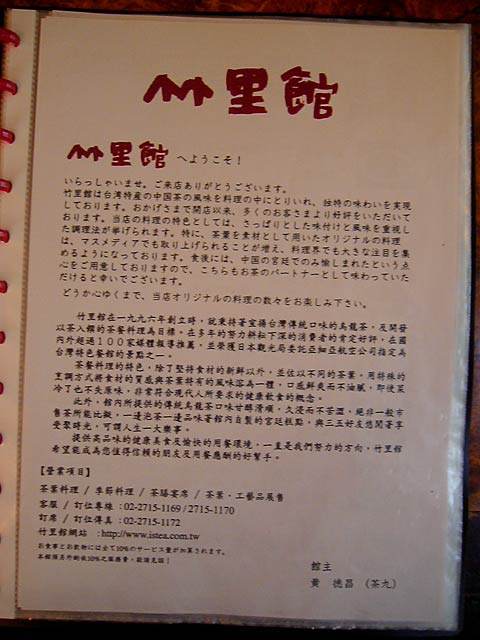 竹里館
竹里館 へようこそ！
いらっしゃいませ。ご来店ありがとうございます。
竹里館は台湾特産の中国茶の風味を料理の中にとりいれ、独特の味わいを実現
しております。おかげさまで開店以来、多くのお客さまより好評をいただいて
おります。当店の料理の特色としては、さっぱりとした味付けと風味を重視し
た調理法が挙げられます。特に、茶葉を素材として用いたオリジナルの料理
は、マスメディアでも取り上げられることが増え、料理界でも大きな注目を集
めるようになっております。食後には、中国の宮廷でのみ愉しまれたという点
心をご用意しておりますので、こちらもお茶のパートナーとして味わっていた
だけると幸いでございます。
どうか心ゆくまで、当店オリジナルの料理の数々をお楽しみ下さい。
竹里館在一九九六年創立時，就秉持著宣揚台灣傳統口味的烏龍茶，及開發
以茶入饌的茶餐料理為目標。在多年的努力耕耘下深的消費者的肯定好評，在國
內外超過１００家媒體報導推薦，並榮獲日本觀光局委託亞細亞航空公司指定為
台灣特色餐館的景點之一。
茶餐料理的特色，除了堅持食材的新鮮以外，並依以不同的茶葉，用特殊的
烹調方式將食材的質感與茶葉特有的風味溶為一體，口感鮮爽而不油膩，即使菜
冷了也不失原味，非常符合現代人所要求的健康飲食的概念。
此外，館內所提供的傳統烏龍茶口味甘醇滑順，久浸而不苦澀，絕非一般市
售茶所能比擬，一邊泡茶一邊品味著館內自製的宮廷糕點，與三五好友悠閒著享
受聚時光，可謂人生一大樂事。
提供高品味的健康美食及愉快的用餐環境，一直是我們努力的方向，竹里館
希望能成為您值得信賴的朋友及用餐應酬的好幫手。
【營業項目】
茶葉料理 / 季節料理 / 茶膳宴席 / 茶葉・工藝品展售
客服 / 訂位專線 ：02-2715-1169 / 2715-1170
訂席 / 訂位傳真 ：02-2715-1172
竹里館網站 ：http://www.istea.com.tw
お食事とお飲物には全て10%のサービス量が加算されます。
本館環另外酌收10%之服務費，敬請見諒！
館主
黄 徳昌 （茶九）